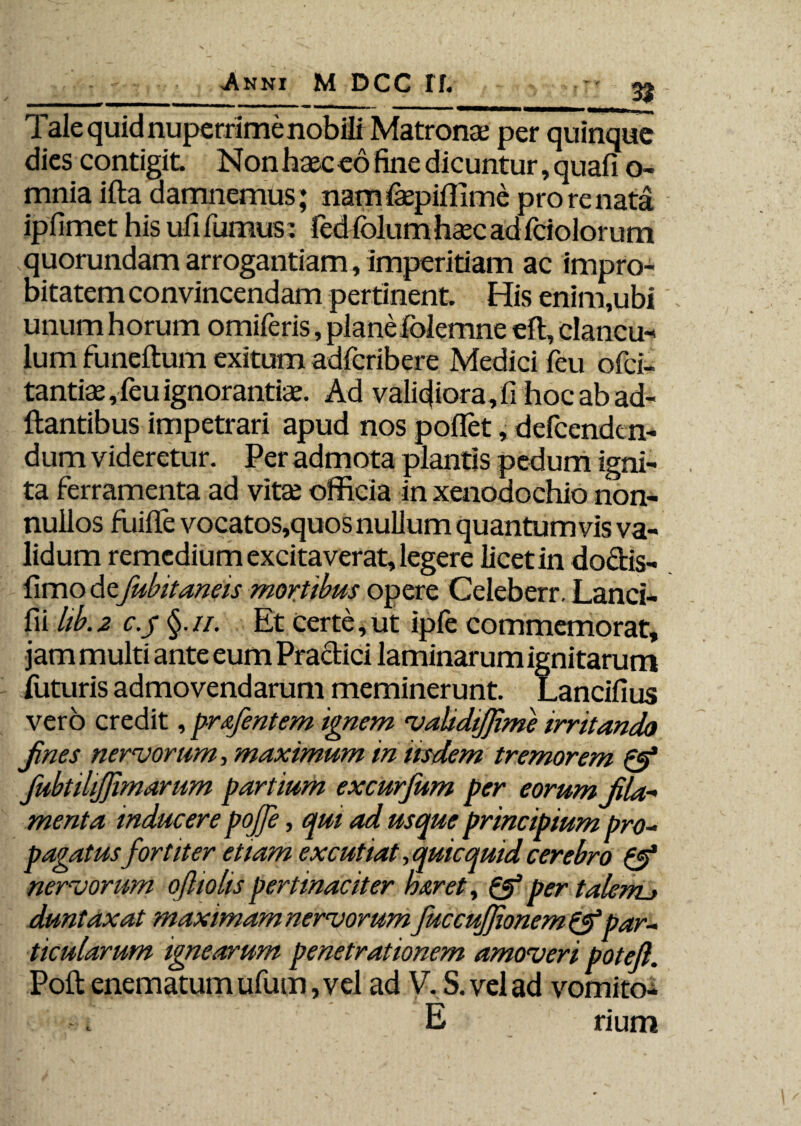 Anni M DCC II. 33
Tale quid nuperrimè nobili Matronæ per quinque
dies contigit. Non hæc eô fine dicuntur, quaſi o-
mnia iſta damnemus; nam ſæpiſſimè pro re nata
ipſimet his uſi ſumus: ſed ſolum hæc ad ſciolorum
quorundam arrogantiam, imperitiam ac impro-
bitatem convincendam pertinent. His enim, ubi
unum horum omiſeris, planè ſolemne eſt, clancu-
lum funeſtum exitum adſcribere Medici ſeu oſci-
tantiæ, ſeu ignorantiæ. Ad validiora, ſi hoc ab ad-
ſtantibus impetrari apud nos poſſet, deſcenden-
dum videretur. Per admota plantis pedum igni-
ta ferramenta ad vitæ officia in xenodochio non-
nullos fuiſſe vocatos, quos nullum quantumvis va-
lidum remedium excitaverat, legere licet in doctis-
ſimo de ſubitaneis mortibus opere Celeberr. Lanci-
ſii lib. 2 c. 5 §. 11. Et certè, ut ipſe commemorat,
jam multi ante eum Practici laminarum ignitarum
futuris admovendarum meminerunt. Lanciſius
verò credit, præſentem ignem validiſſimè irritando
fines nervorum, maximum in iisdem tremorem &
ſubtiliſſimarum partium excurſum per eorum fila-
menta inducere poſſe, qui ad usque principium pro-
pagatus fortiter etiam excutiat, quicquid cerebro &
nervorum oſtiolis pertinaciter hæret, & per talem
duntaxat maximam nervorum ſuccuſſionem & par-
ticularum ignearum penetrationem amoveri poteſt.
Poſt enematum uſum, vel ad V. S. vel ad vomito-
E rium